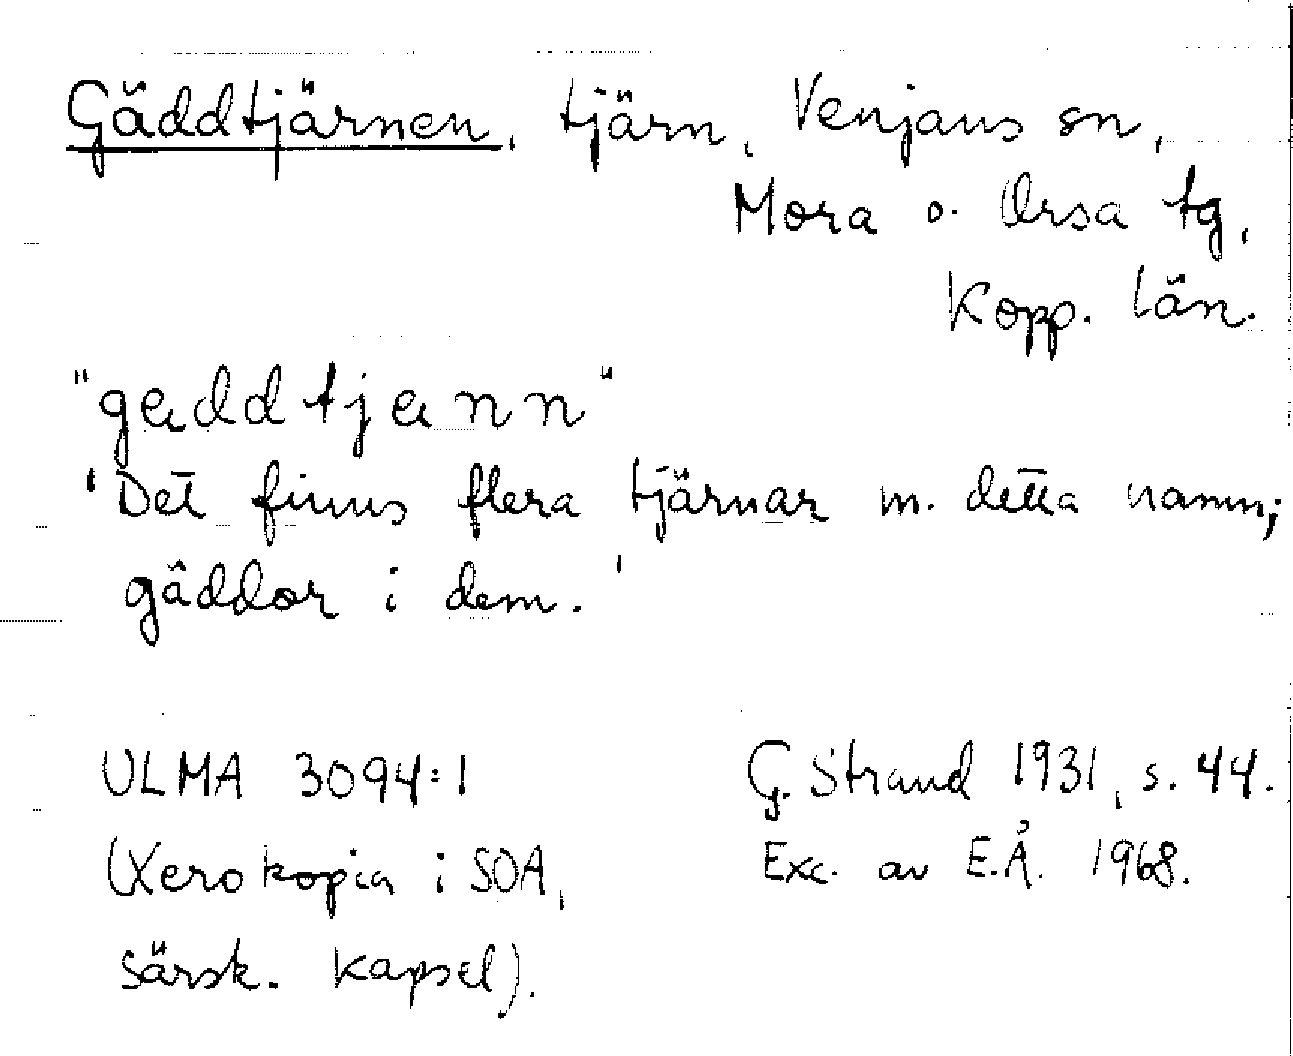 Gäddtjärnen, tjärn, Venjans sn,
Mora o. Orsa tg,
Kopp. län.
"gaddtjann"
'Det finns flera tjärnar m. detta namn;
gäddor i dem.'
ULMA 3094:1
(Xerokopia i SOA,
särsk. kapsel).
G. Strand 1931, s. 44.
Exc. av E.Å. 1968.